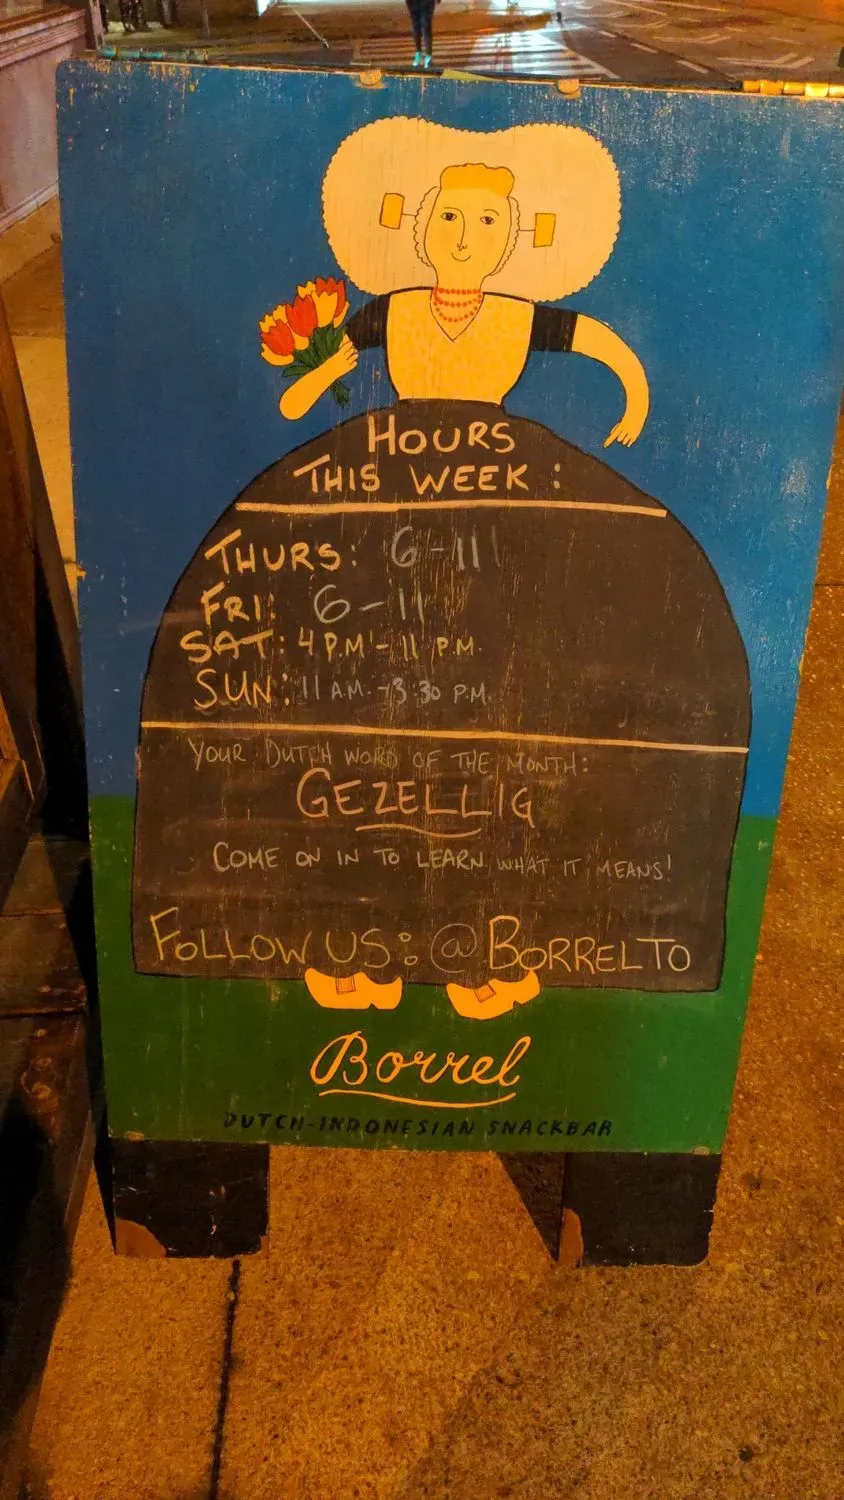 HOURS
THIS WEEK:
THURS: 6-11
FRI: 6-11
SAT: 4 P.M - 11 P.M.
SUN: 11 A.M. - 3:30 P.M.
YOUR DUTCH WORD OF THE MONTH:
GEZELLIG
COME ON IN TO LEARN WHAT IT MEANS!
FOLLOW US: @BORRELTO
Borrel
DUTCH-INDONESIAN SNACKBAR